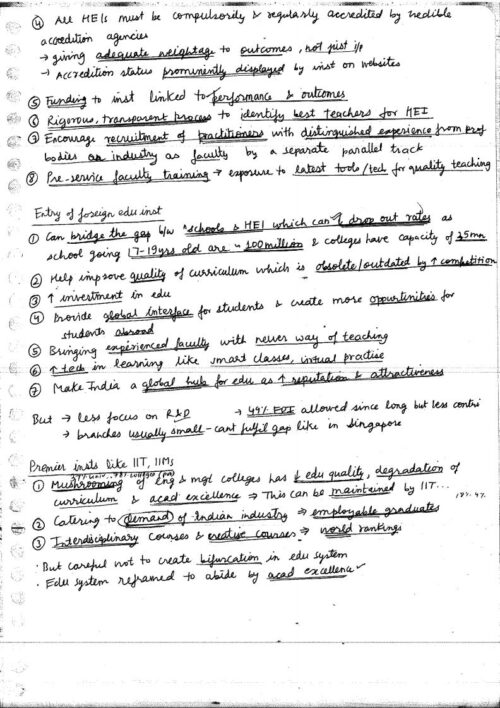 ④ All HEIs must be compulsorily & regularly accredited by credible
accredition agencies
→ giving adequate weightag to outcomes, not just i/p
→ Accredition status prominently displayed by inst on websites
⑤ Funding to inst linked to performance & outcomes
⑥ Rigorous, transparent process to identify best teachers for HEI
⑦ Encourage recruitment of practitioners with distinguished experience from prof
bodies or industry as faculty by a separate parallel track
⑧ Pre-service faculty training → exposure to latest tools/tech for quality teaching
Entry of foreign edu inst
① Can bridge the gap b/w schools & HEI which can ↓ drop out rates as
school going 17-19yrs old are ~ 100 million & colleges have capacity of 35mn
② Help improve quality of curriculum which is obsolete/outdated by ↑ competition
③ ↑ investment in edu
④ Provide global interface for students & create more oppurtinities for
students abroad
⑤ Bringing experienced faculty with newer way of teaching
⑥ ↑ tech in learning like smart classes, virtual practise
⑦ Make India a global hub for edu as ↑ reputation & attractiveness
But → less focus on R&D → 49% FDI allowed since long but less contri
→ branches usually small - cant fulfil gap like in Singapore
Premier insts like IIT, IIMs
① Mushrooming of Eng & mgt colleges has ↓ edu quality, degradation of
curriculum & acad excellence ⇒ This can be maintained by IIT...
② Catering to demand of Indian industry ⇒ employable graduates
③ Interdisciplinary courses & creative courses ⇒ world rankings
· But careful not to create bifurcation in edu system
· Edu system reframed to abide by acad excellence